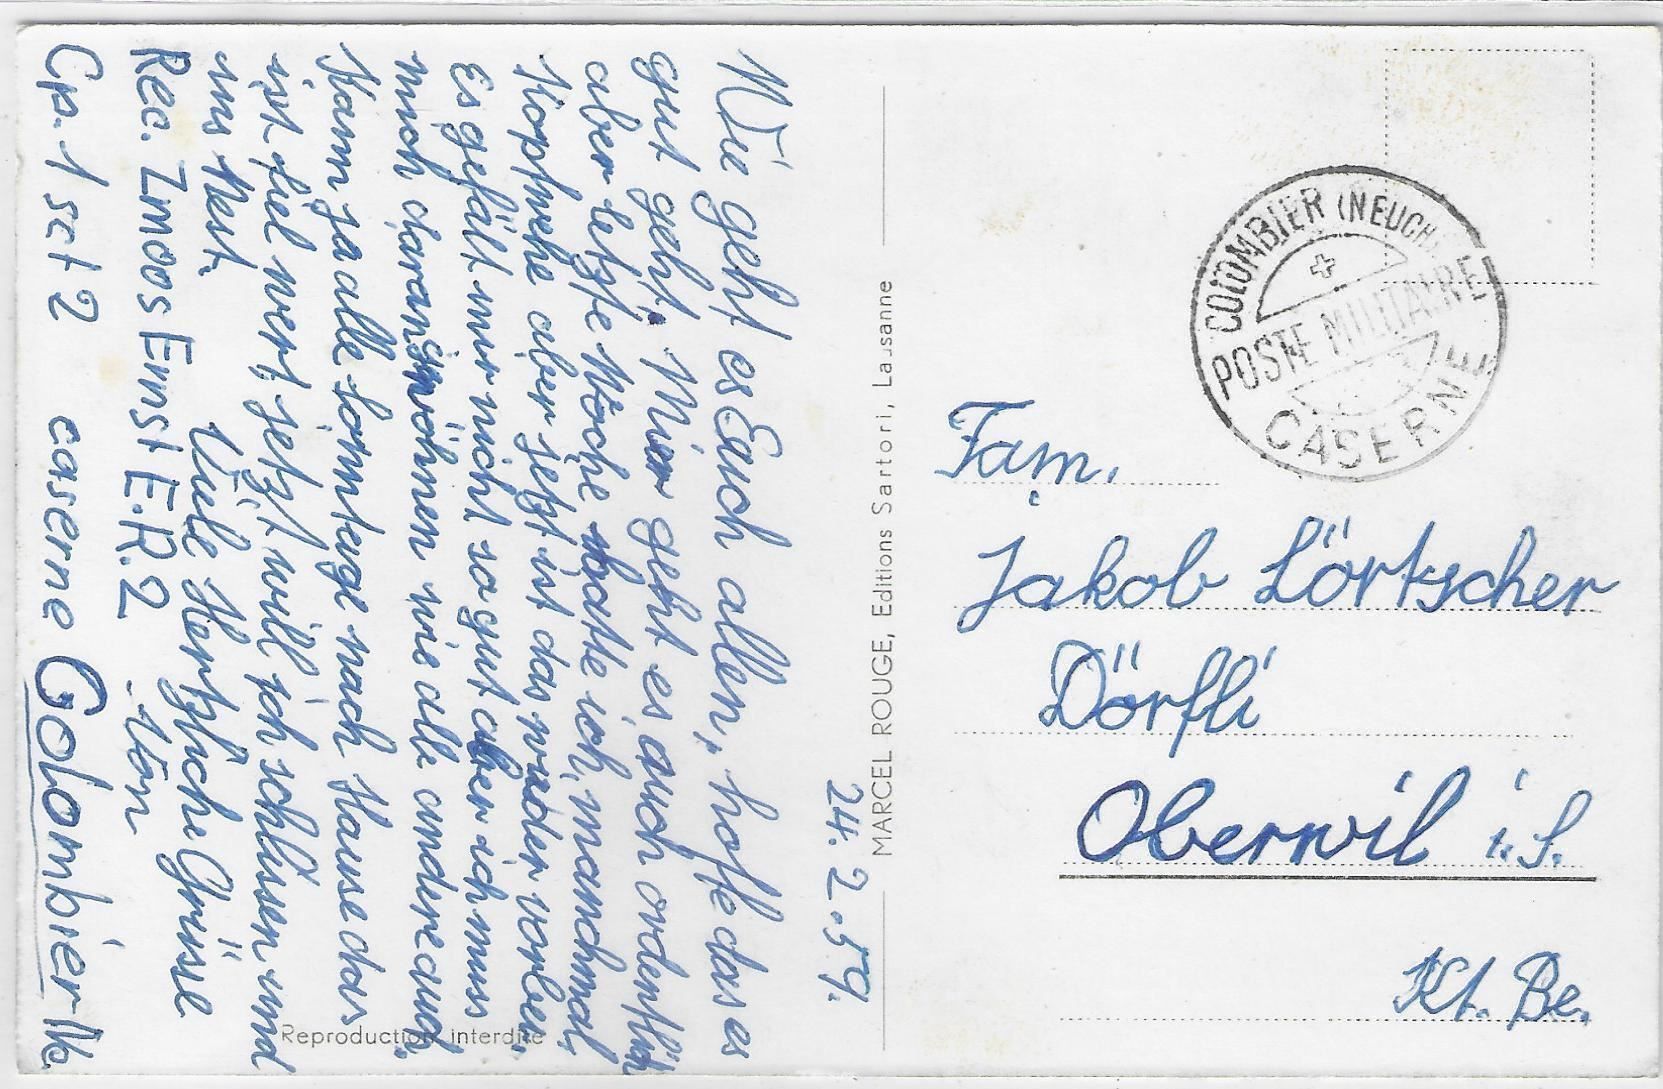 24.2.59.
Wie geht es Euch allen, hoffe das es
gut geht. Mier geht es auch ordentlich
aber letzte Woche hatte ich manchmal
Kopfwehe aber jetzt ist das wieder vorbei.
Es gefält mir nicht so gut aber ich muss
mich daran gewöhnen wie alle andere auch.
Kann ja alle Sonntage nach Hause das
ist fiel wert, jetzt will ich schliesen und
ins Nest.
Viele Herzliche Grüsse
Von
Rec. Zmoos Ernst E.R.2
Cp. 1 sct 2 caserne Colombier Ne
MARCEL ROUGE, Editions Sartori, Lausanne
Reproduction interdite
COLOMBIER (NEUCH.
POSTE MILITAIRE
CASERNE
Fam.
Jakob Lörtscher
Dörfli
Oberwil i. S.
Kt. Be.